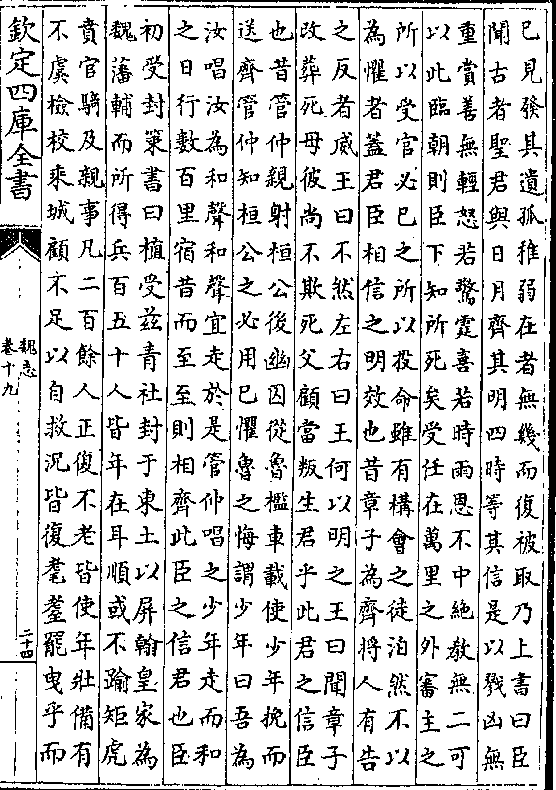 已見發其遺孤稚弱在者無幾而復被取乃上書曰臣
聞古者聖君與日月齊其明四時等其信是以戮凶無
重賞善無輕怒若驚霆喜若時雨恩不中絶教無二可
以此臨朝則臣下知所死矣受任在萬里之外審主之
所以受官必已之所以投命雖有構會之徒泊然不以
為懼者蓋君臣相信之明效也昔章子為齊將人有告
之反者威王曰不然左右曰王何以明之王曰聞章子
改葬死母彼尚不欺死父顧當叛生君乎此君之信臣
也昔管仲親射桓公後幽囚從魯檻車載使少年挽而
送齊管仲知桓公之必用已懼魯之悔謂少年曰吾為
汝唱汝為和聲和聲宜走於是管仲唱之少年走而和
之日行數百里宿昔而至至則相齊此臣之信君也臣
初受封策書曰植受兹青社封于東土以屏翰皇家為
魏藩輔而所得兵百五十人皆年在耳順或不踰矩虎
賁官騎及親事凡二百餘人正復不老皆使年壯備有
不虞檢校乘城顧不足以自救况皆復耄耋罷曳乎而
欽定四庫全書
魏志
卷十九
二十四